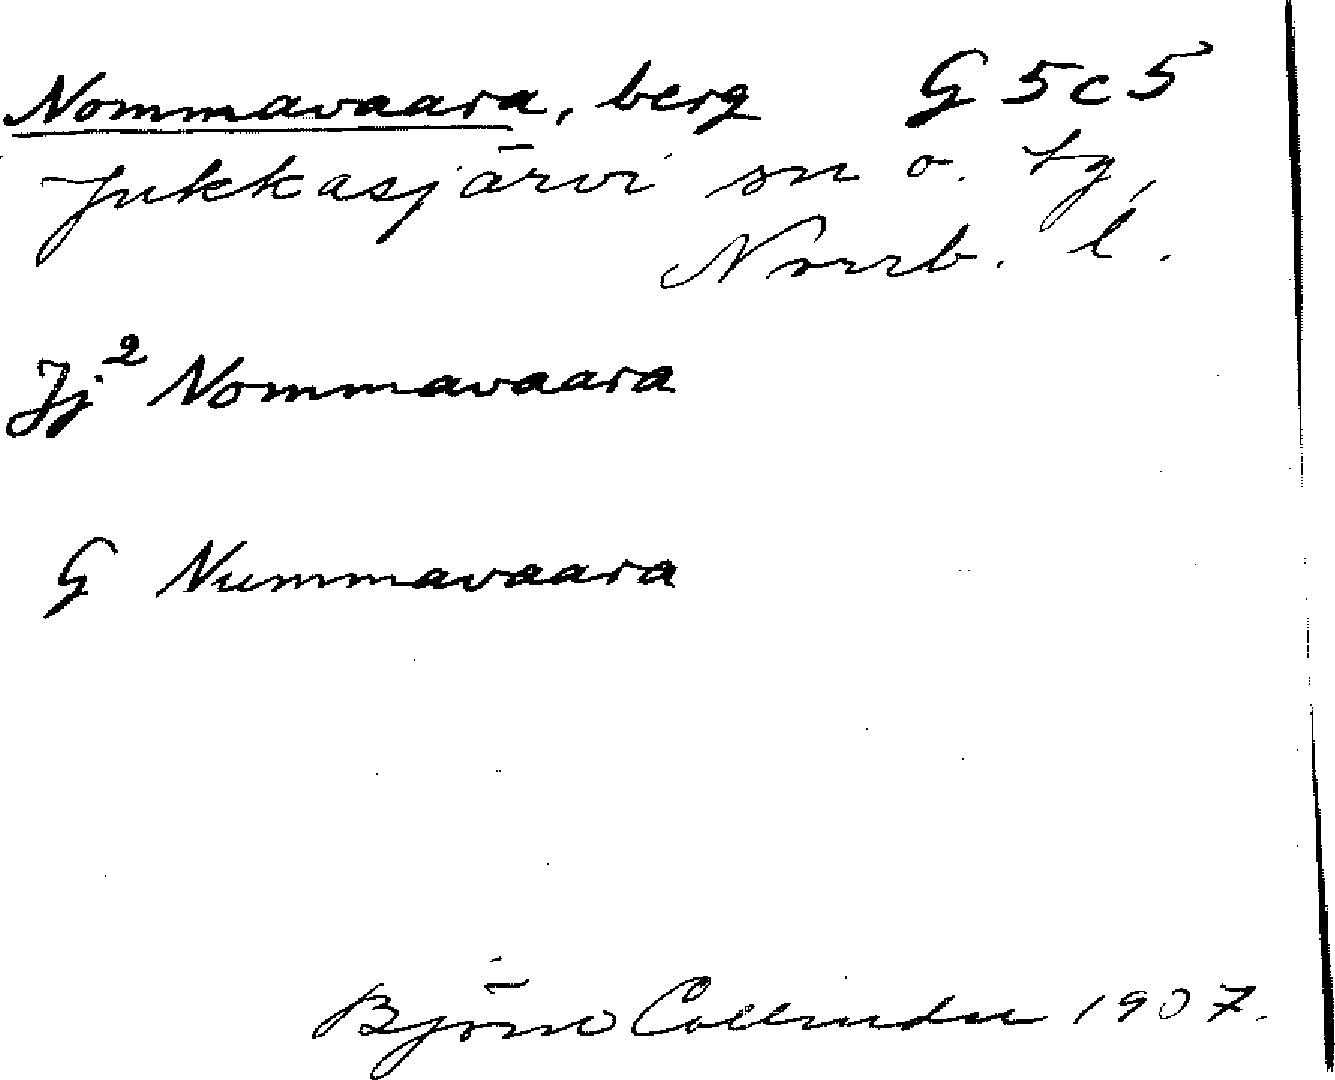 Nommavaara, berg G 5 c 5
Jukkasjärvi sn o. tg,
Norrb. l.
Jj² Nommavaara
G Nummavaara
Björn Collinder 1907.